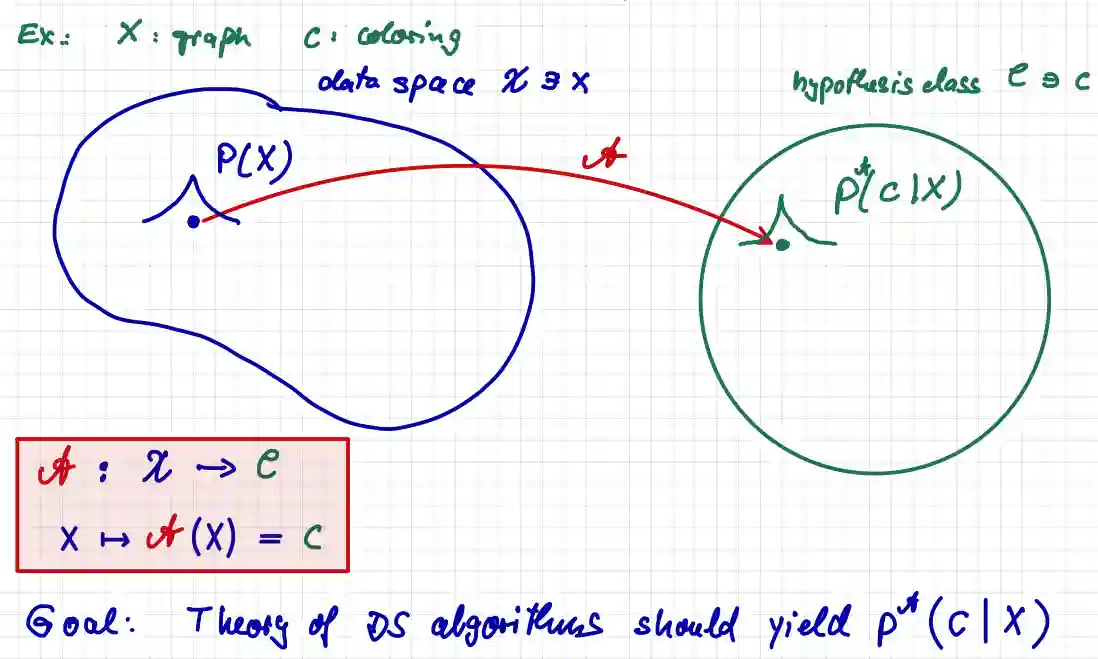 Ex.: X : graph c : coloring
data space 𝒳 ∋ x
hypothesis class 𝒞 ∋ c
P(X)
𝒜
P^𝒜(c|X)
𝒜 : 𝒳 → 𝒞
x ↦ 𝒜(X) = c
Goal: Theory of DS algorithms should yield P^𝒜(c|X)